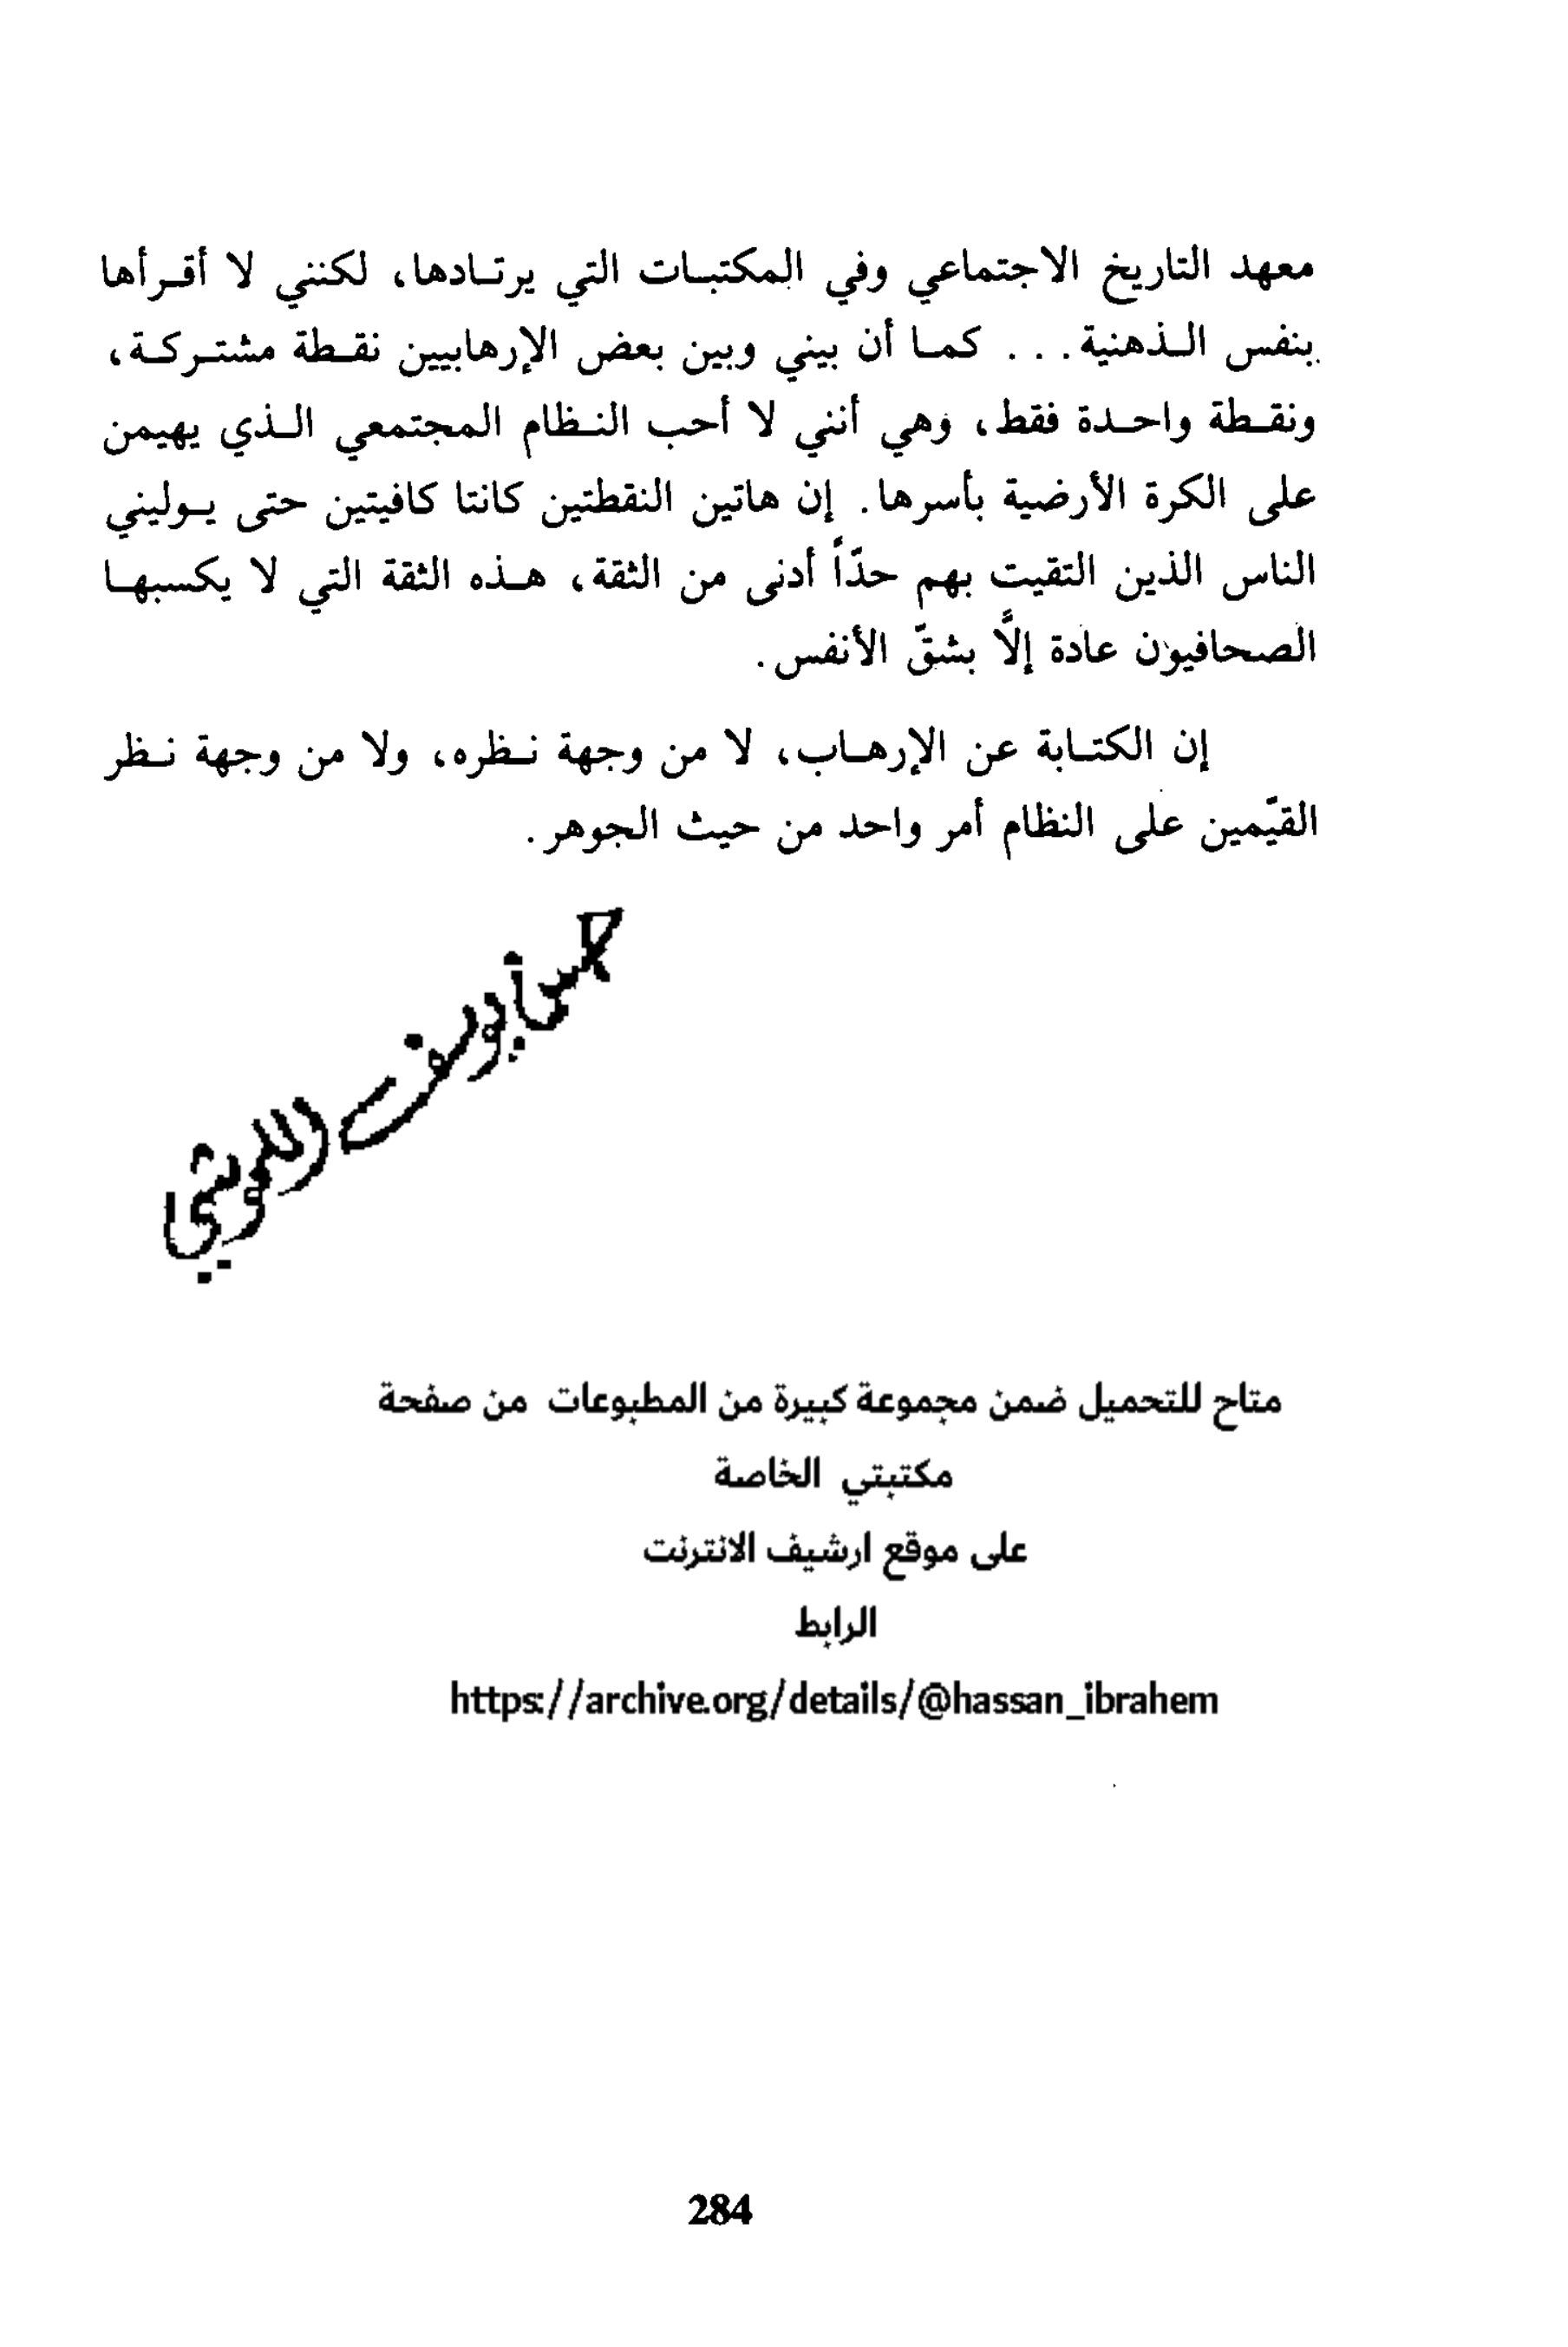 معهد التاريخ الاجتماعي وفي المكتبات التي يرتادها، لكنني لا أقرأها
بنفس الذهنية... كما أن بيني وبين بعض الإرهابيين نقطة مشتركة،
ونقطة واحدة فقط، وهي أنني لا أحب النظام المجتمعي الذي يهيمن
على الكرة الأرضية بأسرها. إن هاتين النقطتين كانتا كافيتين حتى يوليني
الناس الذين التقيت بهم حدّاً أدنى من الثقة، هذه الثقة التي لا يكسبها
الصحافيون عادة إلاَّ بشقّ الأنفس.
إن الكتابة عن الإرهاب، لا من وجهة نظره، ولا من وجهة نظر
القيّمين على النظام أمر واحد من حيث الجوهر.
متاح للتحميل ضمن مجموعة كبيرة من المطبوعات من صفحة
مكتبتي الخاصة
على موقع ارشيف الانترنت
الرابط
https://archive.org/details/@hassan_ibrahem
284